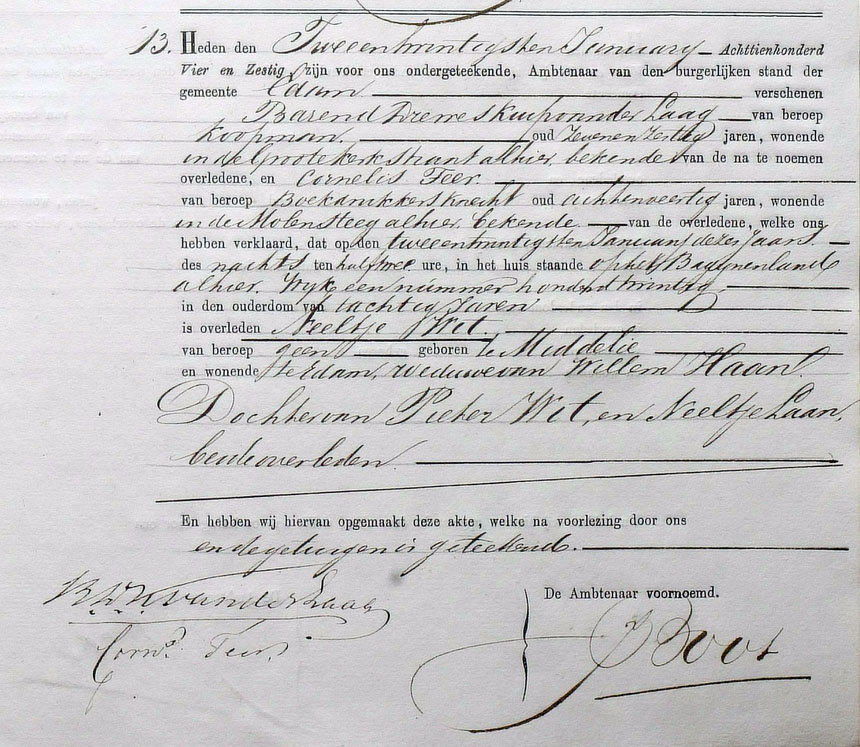 13. Heden den Tweeentwintigsten January Achttienhonderd
Vier en Zestig zijn voor ons ondergeteekende, Ambtenaar van den burgerlijken stand der
gemeente Edam verschenen
Barend van der Laag van beroep
Koopman. oud Zevenenzestig jaren, wonende
in de Grootekerkstraat alhier, bekende van de na te noemen
overledene, en Cornelis Teer.
van beroep Boekdrukkersknecht oud achtenveertig jaren, wonende
in de Molensteeg alhier, bekende van de overledene, welke ons
hebben verklaard, dat op den tweeentwintigsten January dezes Jaars
des nachts ten half twee ure, in het huis staande op het Bagijnenland
alhier, Wijk een nummer honderd twintig
in den ouderdom van tachtig Jaren
is overleden Neeltje Wit.
van beroep geen geboren te Middelie
en wonende te Edam, weduwe van Willem Haan.
Dochter van Pieter Wit, en Neeltje Laan,
beide overleden.
En hebben wij hiervan opgemaakt deze akte, welke na voorlezing door ons
en de getuigen is geteekend.
De Ambtenaar voornoemd.
van der Laag
Corns. Teer.
Boot